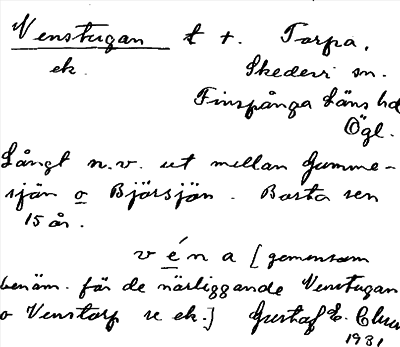 Venstugan t t. Torpa,
ek. Skedevi sn.
Finspånga Läns hd
Ögl.
Långt n.v. ut mellan Gumme-
sjön o Björsjön. Borta sen
15 år.
véna [gemensam
benäm. för de närliggande Venstugan
o Venstorp se ek.] Gustaf E.
1931